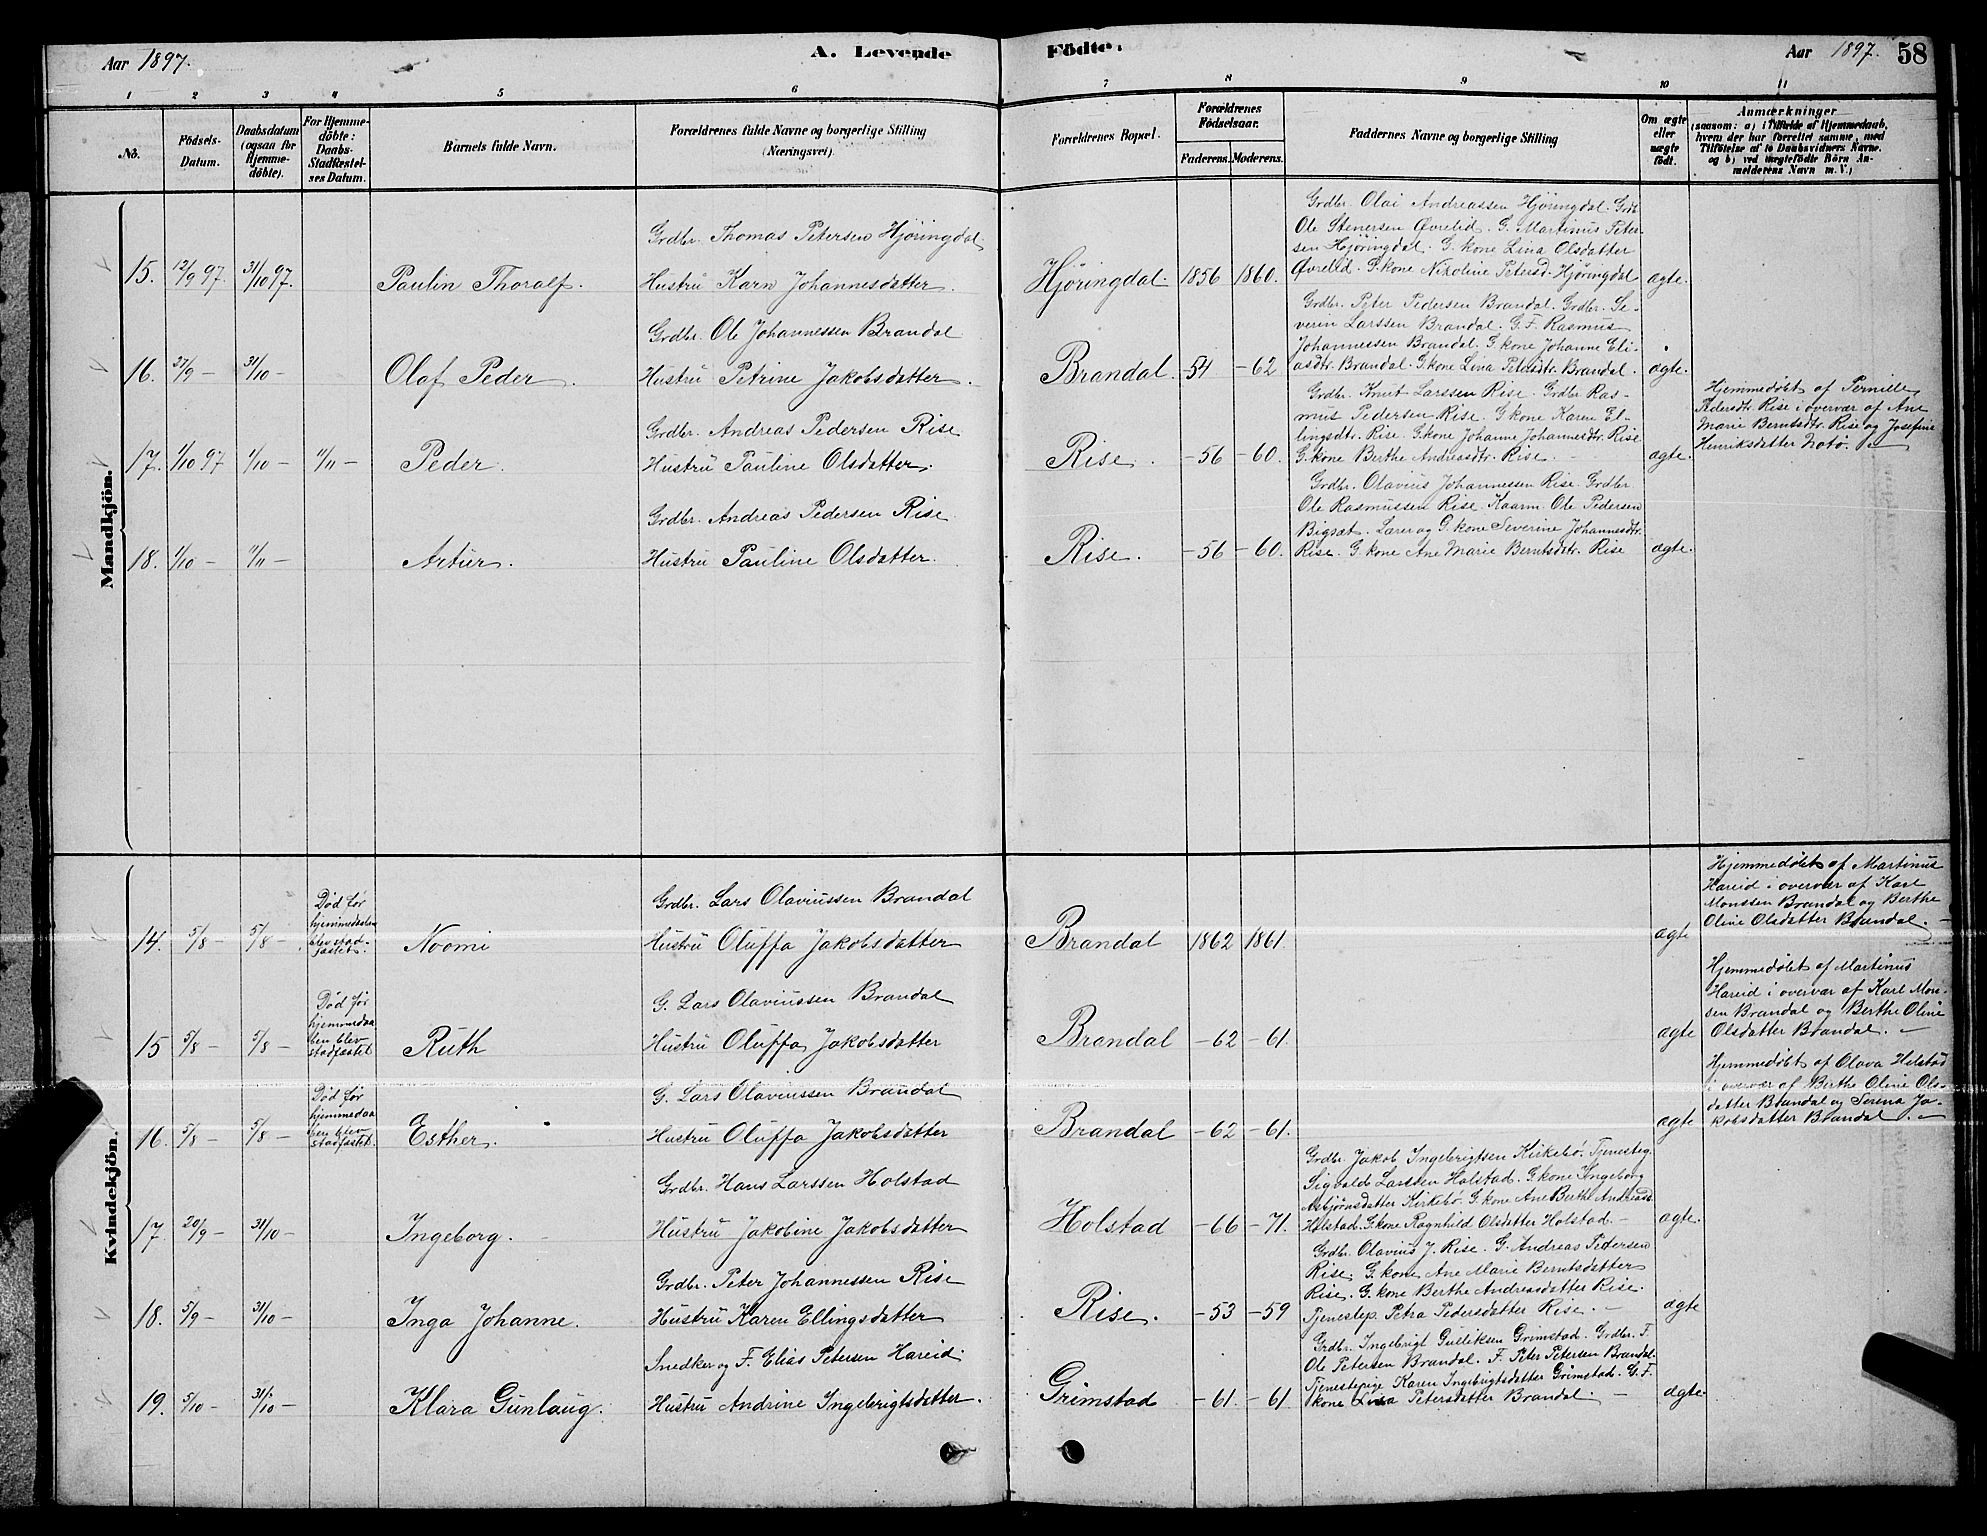 Aar 1897.
A. Levende
Födte.
Aar 1897.
58
1 2 3 4 5 6 7 8 9 10 11
No.
Födsels-
Datum.
Daabsdatum
(ogsaa for
Hjemme-
döbte).
For Hjemme-
döbte:
Daabs-
Stadfæstel-
ses Datum.
Barnets fulde Navn.
Forældrenes fulde Navne og borgerlige Stilling
(Næringsvei).
Forældrenes Bopæl.
Forældrenes
Födselsaar.
Faderens. Moderens.
Faddernes Navne og borgerlige Stilling
Om ægte
eller
uægte
födt.
Anmærkninger
(saasom: a) i Tilfælde af Hjemmedaab,
hvem der har forrettet samme, med
Tilföielse af to Daabsvidners Navne,
og b) ved uægtefödte Börn An-
melderens Navn m. V.)
Mandkjön.
15. 12/9 97. 31/10 97.
Paulin Thoralf.
Grdbr. Thomas Petersen Hjöringdal
Hustru Karn Johannesdatter.
Hjöringdal. 1856 1860.
Grdbr. Olai Andreassen Hjöringdal. Grdb
Ole Stenersen Øvrelid. G. Martinus Peter-
sen Hjöringdal. G. kone Lina Olsdatter
Øvrelid. G. kone Nikoline Petersd. Hjöringdal
ægte.
16. 27/9 — 31/10 —
Olaf Peder.
Grdbr. Ole Johannessen Brandal
Hustru Petrine Jakobsdatter.
Brandal. - 54 - 62
Grdbr. Peter Pedersen Brandal. Grdbr. Se-
verin Larssen Brandal. G. F. Rasmus
Johannessen Brandal. G. kone Johanne Eli-
asdtr. Brandal. G. kone Lina Petersdtr. Brandal.
ægte.
17. 1/10 97 1/10 — 1/11 —
Peder.
Grdbr. Andreas Pedersen Rise
Hustru Pauline Olsdatter.
Rise. - 56 - 60.
Grdbr. Knut Larssen Rise. Grdbr Ras-
mus Pedersen Rise. G kone Karen El-
lingsdtr. Rise. G. kone Johanne Johannesdtr. Rise
G. kone Berthe Andreasdtr. Rise. —
ægte.
Hjemmedøbt af Pernille
Pedersdtr. Rise i overvær af Ane
Marie Berntsdtr. Rise og Josefine
Henriksdatter Notø. —
18. 1/10 — 1/11 —
Artur.
Grdbr. Andreas Pedersen Rise
Hustru Pauline Olsdatter.
Rise. - 56 - 60.
Grdbr. Olavius Johannessen Rise. Grdbr
Ole Rasmussen Rise. Kaarm. Ole Pedersen
Bigsæt. Lærer og G. kone Severine Johannesdtr.
Rise. G. kone Ane Marie Berntsdtr. Rise
ægte.
Kvindekjön.
14. 5/8 — 5/8 —
Død før
hjemmedaaben
blev stad-
fæstet.
Noomi
Grdbr. Lars Olaviussen Brandal
Hustru Oluffa Jakobsdatter
Brandal 1862 1861.
ægte
Hjemmedøbt af Martinus
Hareid i overvær af Karl
Monssen Brandal og Berthe
Oline Olsdatter Brandal. —
15 5/8 — 5/8 —
Død før
hjemmedaa
ben blev
stadfæstet
Ruth
G. Lars Olaviussen Brandal
Hustru Oluffa Jakobsdatter
Brandal - 62 - 61.
ægte
Hjemmedøbt af Martinus
Hareid i overvær af Karl Mon-
sen Brandal og Berthe Oline
Olsdatter Brandal. —
16. 5/8 — 5/8 —
Død før
hjemmedaa
ben blev
stadfæstet.
Esther.
G. Lars Olaviussen Brandal
Hustru Oluffa Jakobsdatter
Brandal - 62 - 61.
ægte
Hjemmedøbt af Olava Helstad
i overvær af Berthe Oline Ols-
datter Brandal og Serena Ja-
kobsdatter Brandal. —
17. 20/9 — 31/10 —
Ingeborg.
Grdbr. Hans Larssen Holstad
Hustru Jakobine Jakobsdatter
Holstad - 66 - 71.
Grdbr. Jakob Ingebrigtsen Kirkebø. Tjenesteg.
Sigvald Larssen Holstad. G. kone Ingeborg
Asbjørnsdatter Kirkebø. G. kone Ane Berthe Andreasd.
Holstad. G. kone Ragnhild Olsdatter Holstad. —
ægte.
18. 5/9 — 31/10 —
Inga Johanne.
Grdbr. Peter Johannessen Rise
Hustru Karen Ellingsdatter
Rise. - 53 - 59
Grdbr. Olavius J. Rise. G. Andreas Pedersen
Rise. G. kone Ane Marie Berntsdatter
Rise. G. kone Berthe Andreasdatter Rise.
Tjenestep. Petra Pedersdatter Rise. —
ægte
19. 5/10 — 31/10 —
Klara Gunlaug.
Snedker og F. Elias Petersen Hareid.
Hustru Andrine Ingebrigtsdatter.
Grimstad - 61. - 61
Grdbr. Ingebrigt Gulliksen Grimstad. Grdbr. F.
Ole Petersen Brandal. F. Peter Petersen Brandal.
Tjenestepige Karen Ingebrigtsdatter Grimstad. G. F.
kone Lina Petersdatter Brandal. —
ægte.